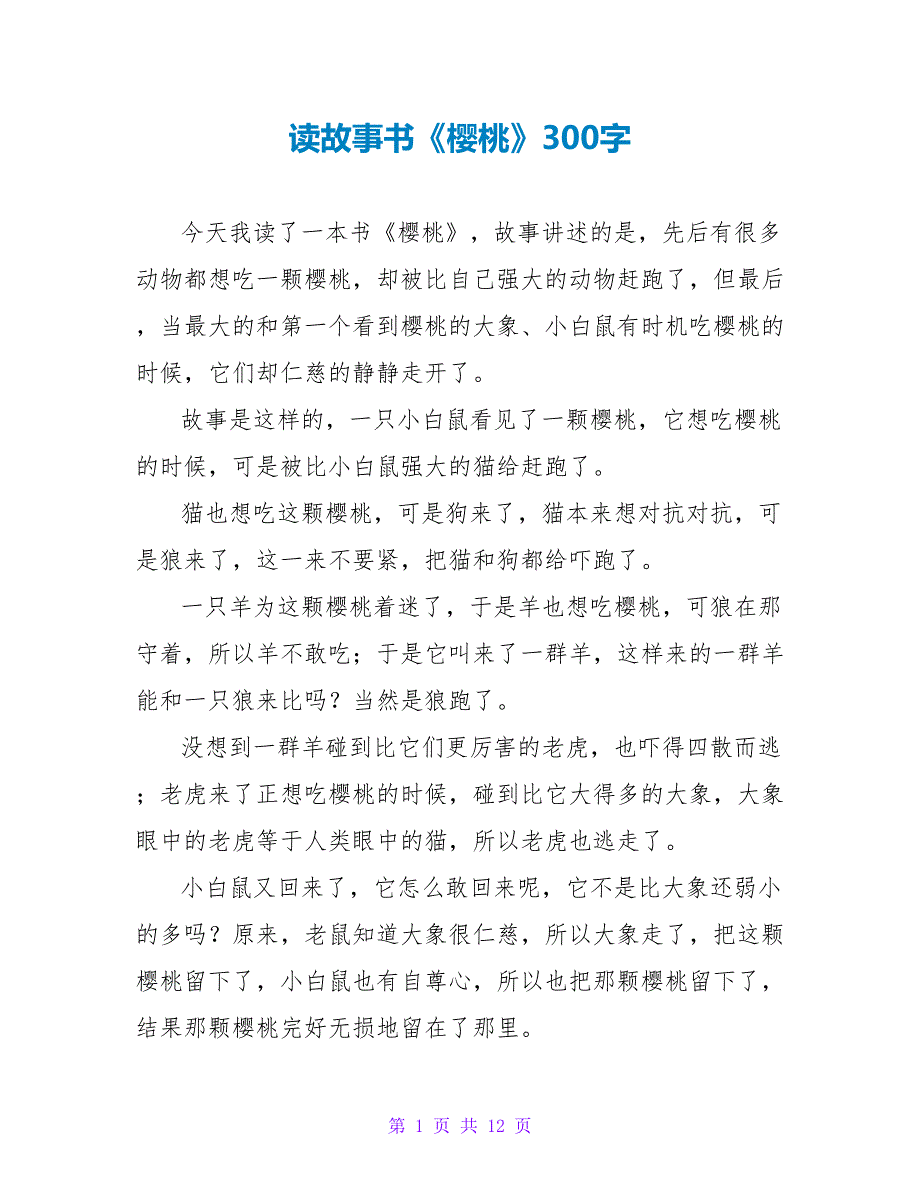 读故事书《樱桃》300字
今天我读了一本书《樱桃》，故事讲述的是，先后有很多
动物都想吃一颗樱桃，却被比自己强大的动物赶跑了，但最后
，当最大的和第一个看到樱桃的大象、小白鼠有时机吃樱桃的
时候，它们却仁慈的静静走开了。
故事是这样的，一只小白鼠看见了一颗樱桃，它想吃樱桃
的时候，可是被比小白鼠强大的猫给赶跑了。
猫也想吃这颗樱桃，可是狗来了，猫本来想对抗对抗，可
是狼来了，这一来不要紧，把猫和狗都给吓跑了。
一只羊为这颗樱桃着迷了，于是羊也想吃樱桃，可狼在那
守着，所以羊不敢吃；于是它叫来了一群羊，这样来的一群羊
能和一只狼来比吗？当然是狼跑了。
没想到一群羊碰到比它们更厉害的老虎，也吓得四散而逃
；老虎来了正想吃樱桃的时候，碰到比它大得多的大象，大象
眼中的老虎等于人类眼中的猫，所以老虎也逃走了。
小白鼠又回来了，它怎么敢回来呢，它不是比大象还弱小
的多吗？原来，老鼠知道大象很仁慈，所以大象走了，把这颗
樱桃留下了，小白鼠也有自尊心，所以也把那颗樱桃留下了，
结果那颗樱桃完好无损地留在了那里。
第 1 页 共 12 页